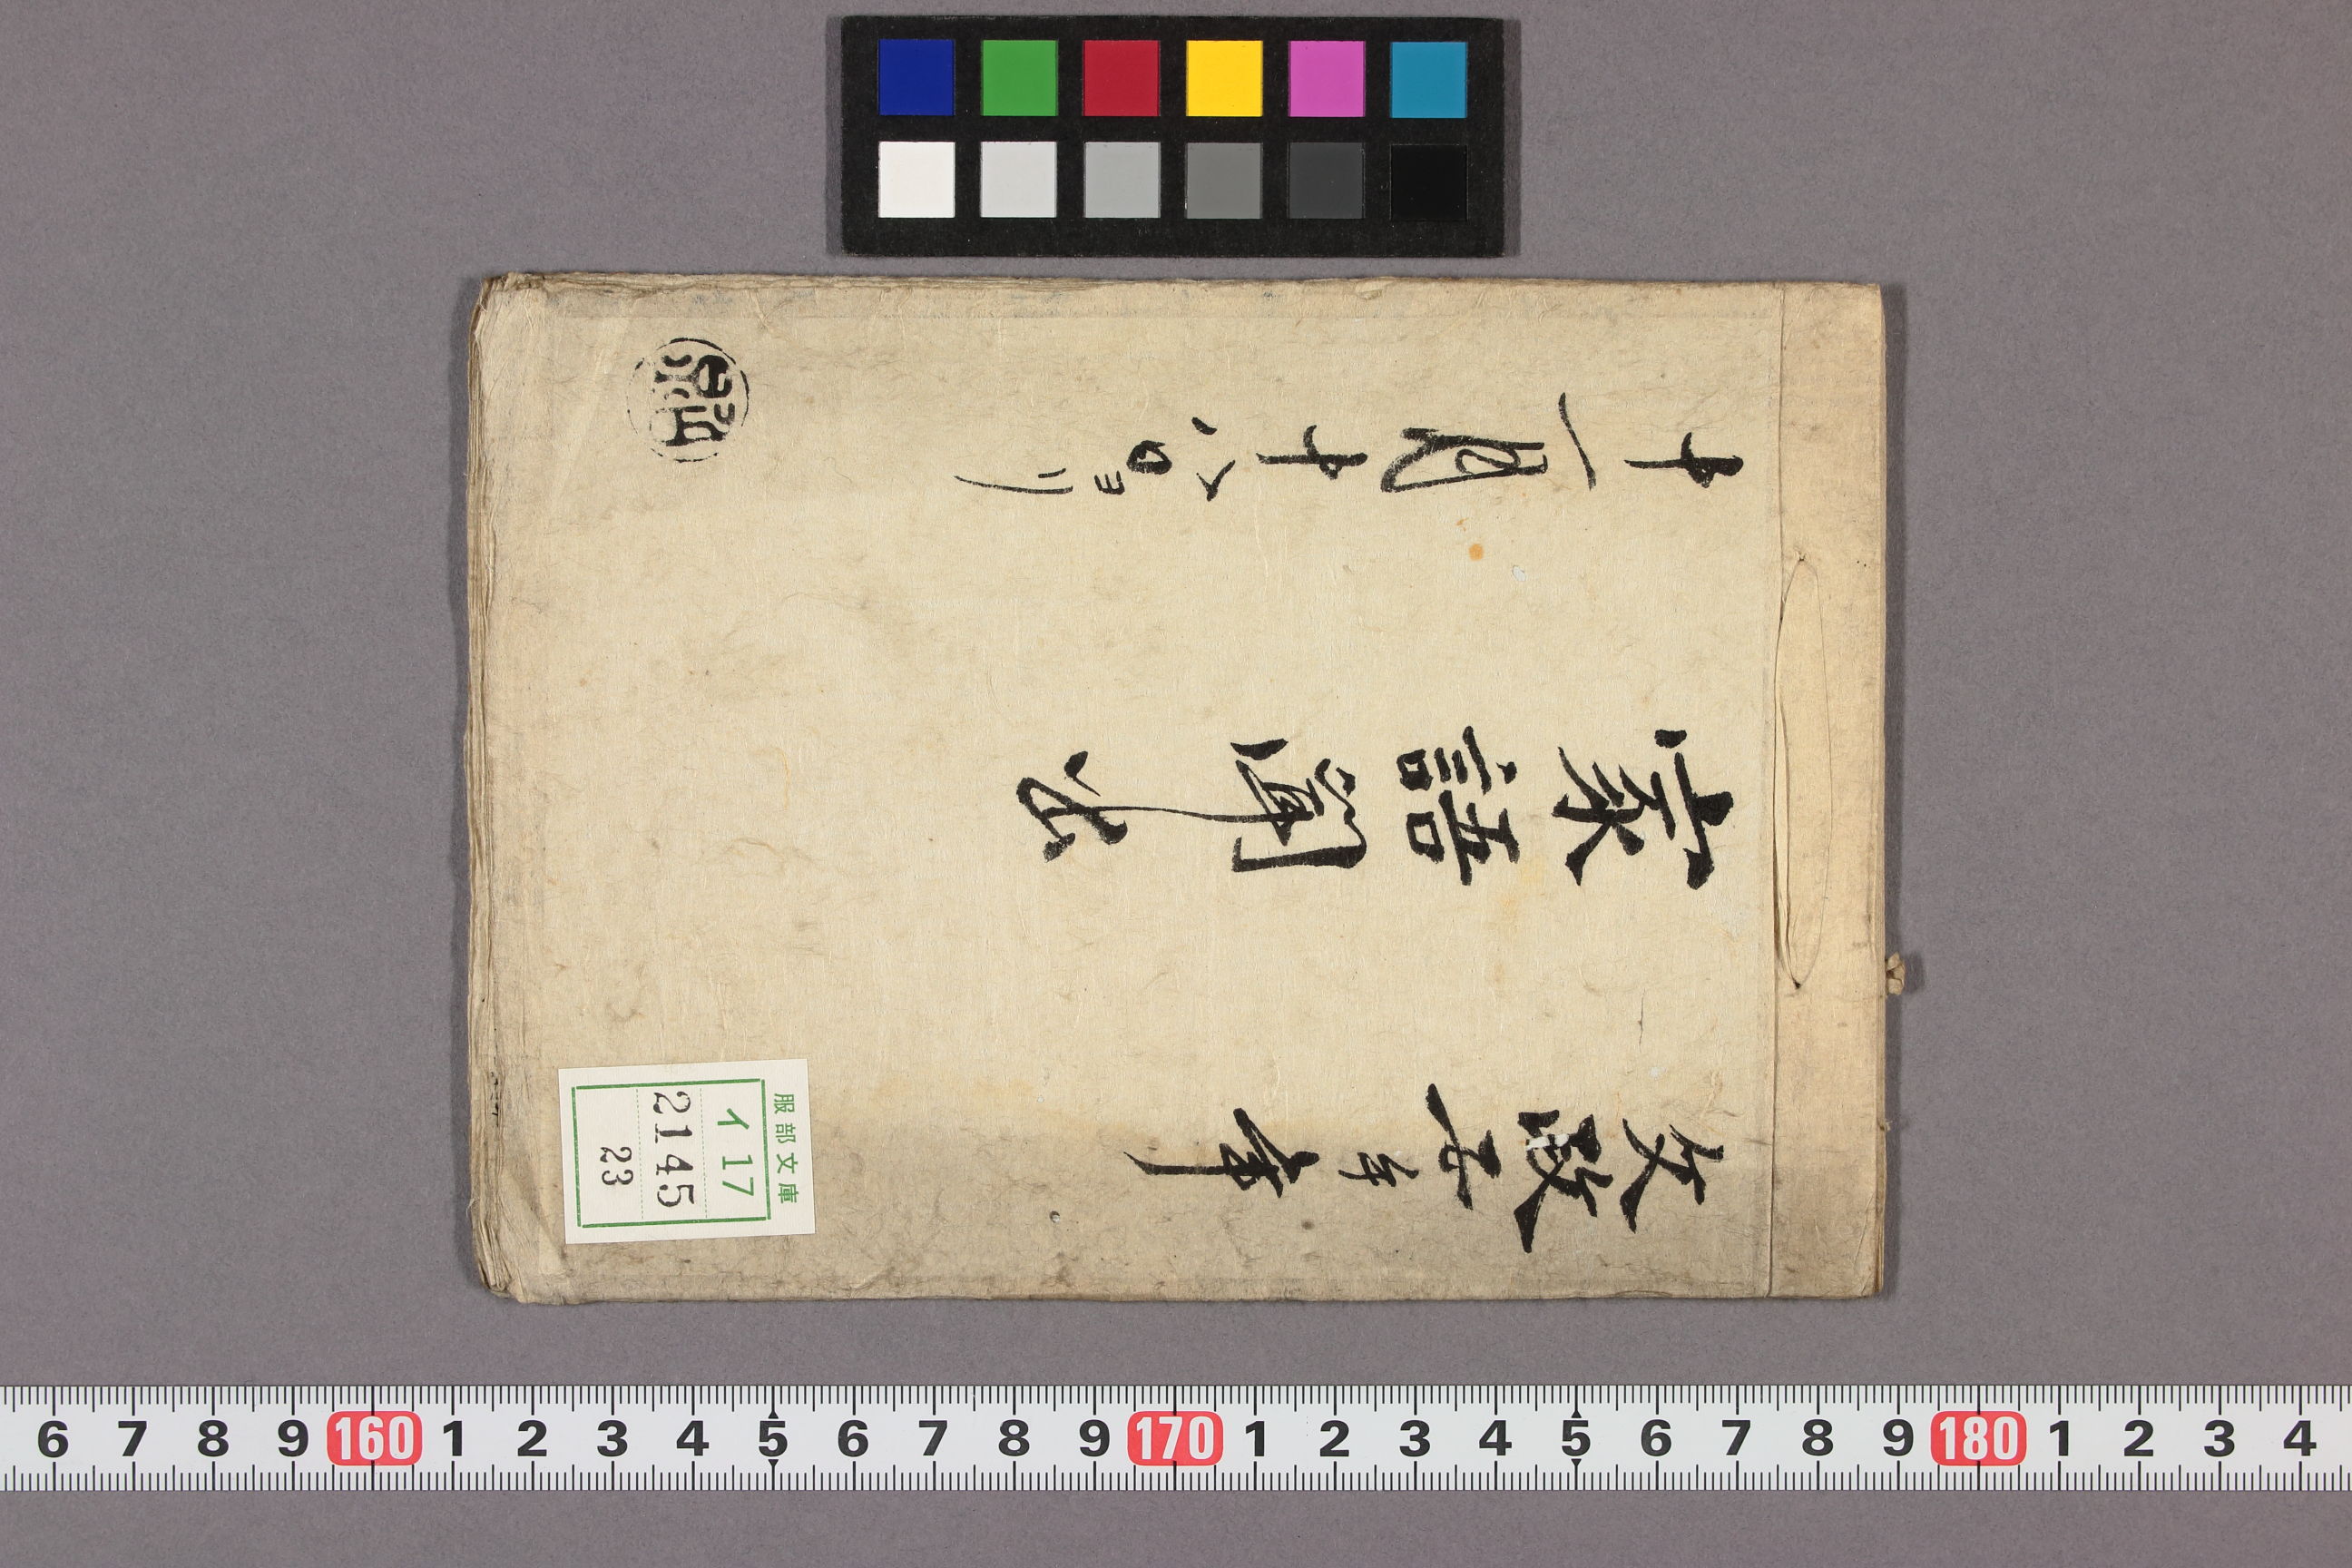 文政五壬午年
家語
十一月十八日ヨリ
服部文庫
イ 17
2145
23
6 7 8 9 160 1 2 3 4 5 6 7 8 9 170 1 2 3 4 5 6 7 8 9 180 1 2 3 4